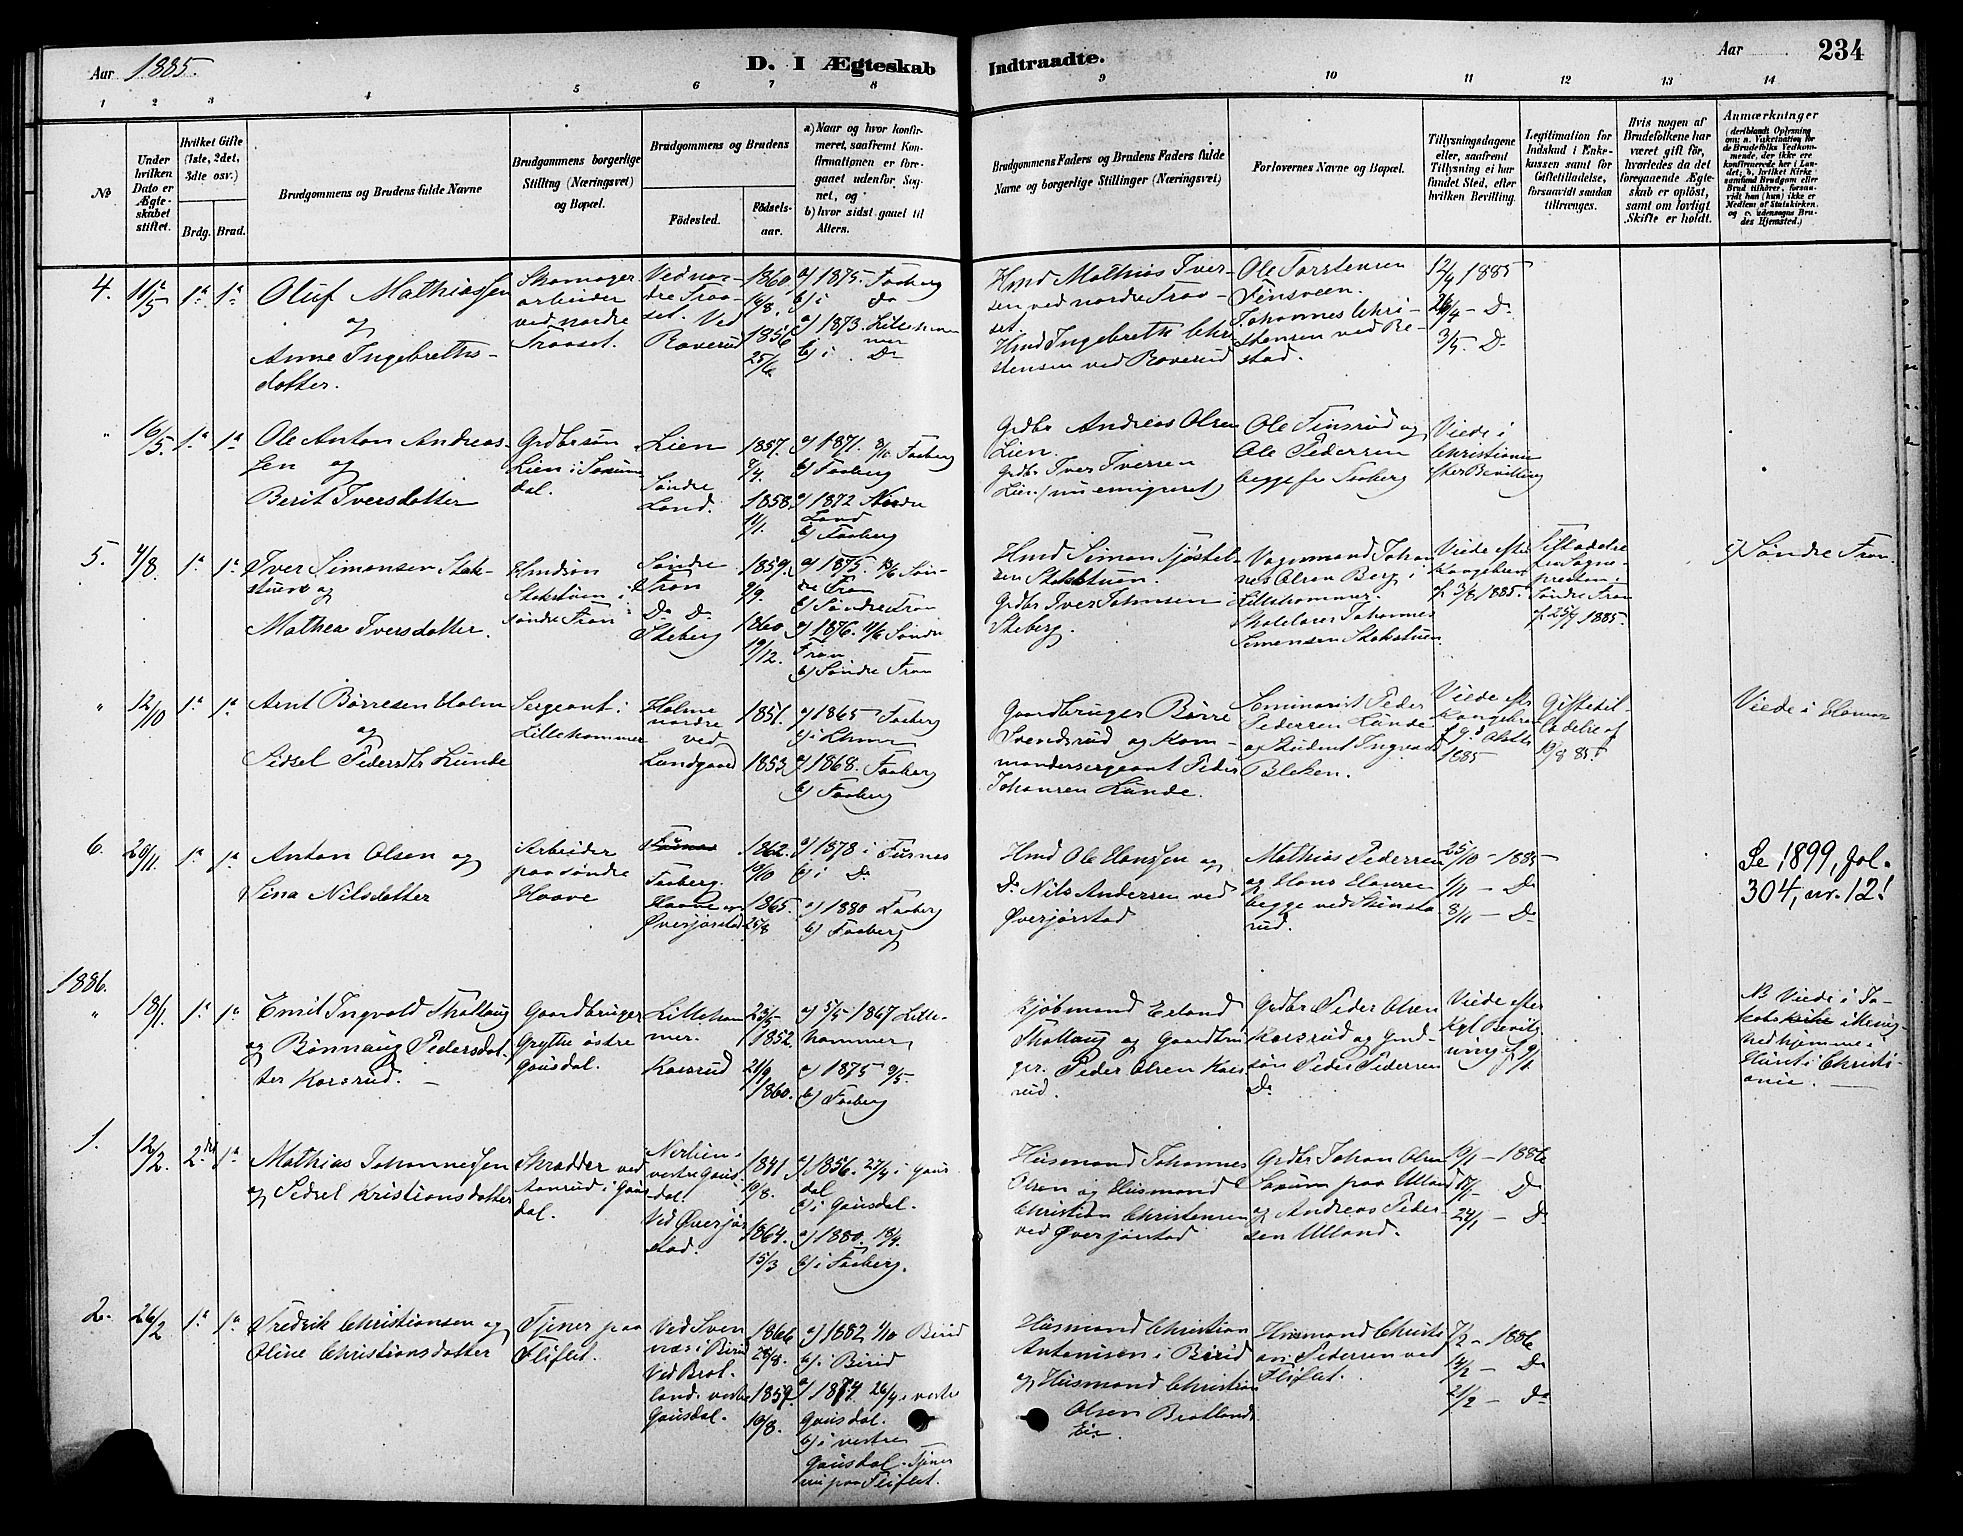 Aar 1885.
D. I Ægteskab
Indtraadte.
Aar
234
1 2 3 4 5 6 7 8 9 10 11 12 13 14
No
Under hvilken Dato er Ægteskabet stiftet.
Hvilket Gifte (1ste, 2det, 3die osv.)
Brdg. Brud.
Brudgommens og Brudens fulde Navne
Brudgommens borgerlige Stilling (Næringsvei) og Bopæl.
Brudgommens og Brudens
Födested.
Födsels-aar.
a) Naar og hvor konfirmeret, saafremt Konfirmationen er foregaaet udenfor Sognet, og b) hvor sidst gaaet til Alters.
Brudgommens Faders og Brudens Faders fulde Navne og borgerlige Stillinger (Næringsvei)
Forlovernes Navne og Bopæl.
Tillysningsdagene eller, saafremt Tillysning ei har fundet Sted, efter hvilken Bevilling.
Legitimation for Indskud i Enkekassen samt for Giftetilladelse, forsaavidt saadan tiltrænges.
Hvis nogen af Brudefolkene har været gift för, hvorledes da det foregaaende Ægteskab er oplöst, samt om lovligt Skifte er holdt.
Anmærkninger
(deriblandt Oplysning om: a. Vakcination for de Brudefolks Vedkommende, der ikke ere konfirmerede her i Landet; b. hvilket Kirkesamfund Brudgom eller Brud tilhörer, forsaavidt han (hun) ikke er Medlem af Statskirken, og c. udensogns Brudes Hjemsted.)
4. 11/5 1ª 1ª
Oluf Mathiassen
og
Anne Ingebreths-
datter.
Skomager
arbeider
ved nordre
Traaset.
Ved nor-
dre Traa-
set. Ved
Roverud
1860.
16/8.
1856
25/6
a) 1875. Faaberg
b) i do
a) 1873. Lilleham
mer
b) i Do
Hmd Mathias Iver-
sen ved nordre Traa-
set.
Hmd Ingebreth Chri
stensen ved Roverud
Ole Torstensen
Finsveen.
Johannes Chri-
stensen ved Re-
stad.
12/4 1885
26/4 - Do
3/5. Do
" 16/5. 1ª 1ª
Ole Anton Andreas-
sen og
Berit Iversdatter
Grdbrsøn
Lien i Saxum
dal.
Lien
Søndre
Land.
1857.
7/4.
1858.
11/1.
a) 1871. 8/10 Faaberg
b) Faaberg
a) 1872 Nordre
Land
b) Faaberg
Grdbr Andreas Olsen
Lien.
Grdbr Iver Iversen
Lien (nu emigreret)
Ole Finsrud og
Ole Pedersen
begge fra Faaberg
Viede i
Christiania
efter Bevilling
5. 4/8. 1ª 1ª
Iver Simonsen Stok-
stuen og
Mathea Iversdatter.
Hmdsøn
Stokstuen i
søndre Fron
Søndre
Fron
Do Do
Steberg
1859.
9/9.
1860
19/12.
a) 1875. 13/6 Søn-
dre Fron
b) Søndre Fron
a) 1876. 11/6 Søndre
Fron
b) Søndre Fron
Hmd Simon Tjøstel-
sen Stokstuen.
Grdbr Iver Johnsen
Steberg.
Vognmand Johan
nes Olsen Berg i
Lillehammer
Skolelærer Johannes
Simensen Stokstuen
Viede efter
Kongebrev
af 3/8 1885.
Tilladelse
fra Sogne-
presten i
Søndre Fron
af 25/7 1885.
c) Søndre Fron
" 12/10 1ª 1ª
Arnt Børresen Holm
og
Sidsel Pedersdtr Lunde
Sergeant i
Lillehammer
Holme
nordre
ved
Lundgaard
1851.
1853
a) 1865 Faaberg
b) i Lhmer
a) 1868. Faaberg
b) Faaberg
Gaardbruger Børre
Svendsrud og Kom-
mandersergeant Peder
Johansen Lunde.
Seminarist Peder
Pedersen Lunde
og Student Ingvald
Bleken.
Viede eftr
Kongebrev
1885
Giftetil-
ladelse af
19/8 85.
Viede i Hamar
6. 20/11. 1ª 1ª
Anton Olsen og
Sina Nilsdatter
Arbeider
paa søndre
Haave
Furnes
Faaberg.
Haave og
Øverjørstad
1862.
10/10
1865.
25/8
a) 1878 i Furnes
b) i Do
a) 1880 Faaberg
b) Faaberg
Hmd Ole Hanssen og
Do Nils Andersen ved
Øverjørstad
Mathias Pedersen
og Hans Hansen
begge ved Skinsta
rud.
25/10 - 1885
1/11 - Do
8/11 - Do
Se 1899, fol.
304, nr. 12!
1886.
" 18/1. 1ª 1ª
Emil Ingvald Thallaug
og Rønnaug Pedersdat-
ter Korsrud. -
Gaardbruger
Grythe østre
Gausdal.
Lilleham
mer.
Korsrud
23/5
1852.
21/9
1860.
a) 5/5 1867 Lille-
hammer,
a) 1875 9/5.
b) Faaberg
Kjøbmand Erland
Thallaug og Gaardbru
ger. Peder Olsen Kors
rud.
Grdbr Peder Olsen
Korsrud og Grd-
søn Peder Pedersen
Do
Viede efter
Kgl Bevilg-
ning af 9/1
NB Viede i Ja-
cobs kirke i Menig-
hedhjemme i
Christi-
ania.
1. 12/2. 2det 1ª
Mathias Johannessen
og Sidsel Kristiansdatter
Skrædder ved
Aanrud i Gaus
dal.
Nerlien i
vestre Gaus-
dal.
Ved Øverjør
stad.
1841.
10/8.
1864.
15/3
a) 1856. 27/4 i Gaus
dal
b) i Gausdal.
a) 1880. 18/4.
b) i Faaberg.
Husmand Johannes
Olsen og Husmand
Christian Christensen
ved Øverjørstad
Grdbr Johan Olsen
Saxum paa Ulland
og Andreas Peder-
sen Ulland.
10/1 - 1886
17/1 - Do
24/1 - Do
2. 26/2 1ª 1ª
Fredrik Christiansen og
Oline Christiansdatter
Tjener paa
Fliflet.
Ved Sven
næs i Birid
Ved Brot-
land. vestre
Gausdal.
1866
28/8.
1857.
10/8.
a) 1882 1/10 Birid
b) i Birid
a) 1874 26/4 i vestre
Gausdal.
b) i vestre
Gausdal. Tjener
nu paa Fliflet.
Husmand Christian
Antonisen i Birid
og Husmand Christian
Olsen Brotlands
Eie.
Husmand Christi
an Pedersen ved
Fliflet.
7/2 - 1886
14/2 - Do
21/2 - Do